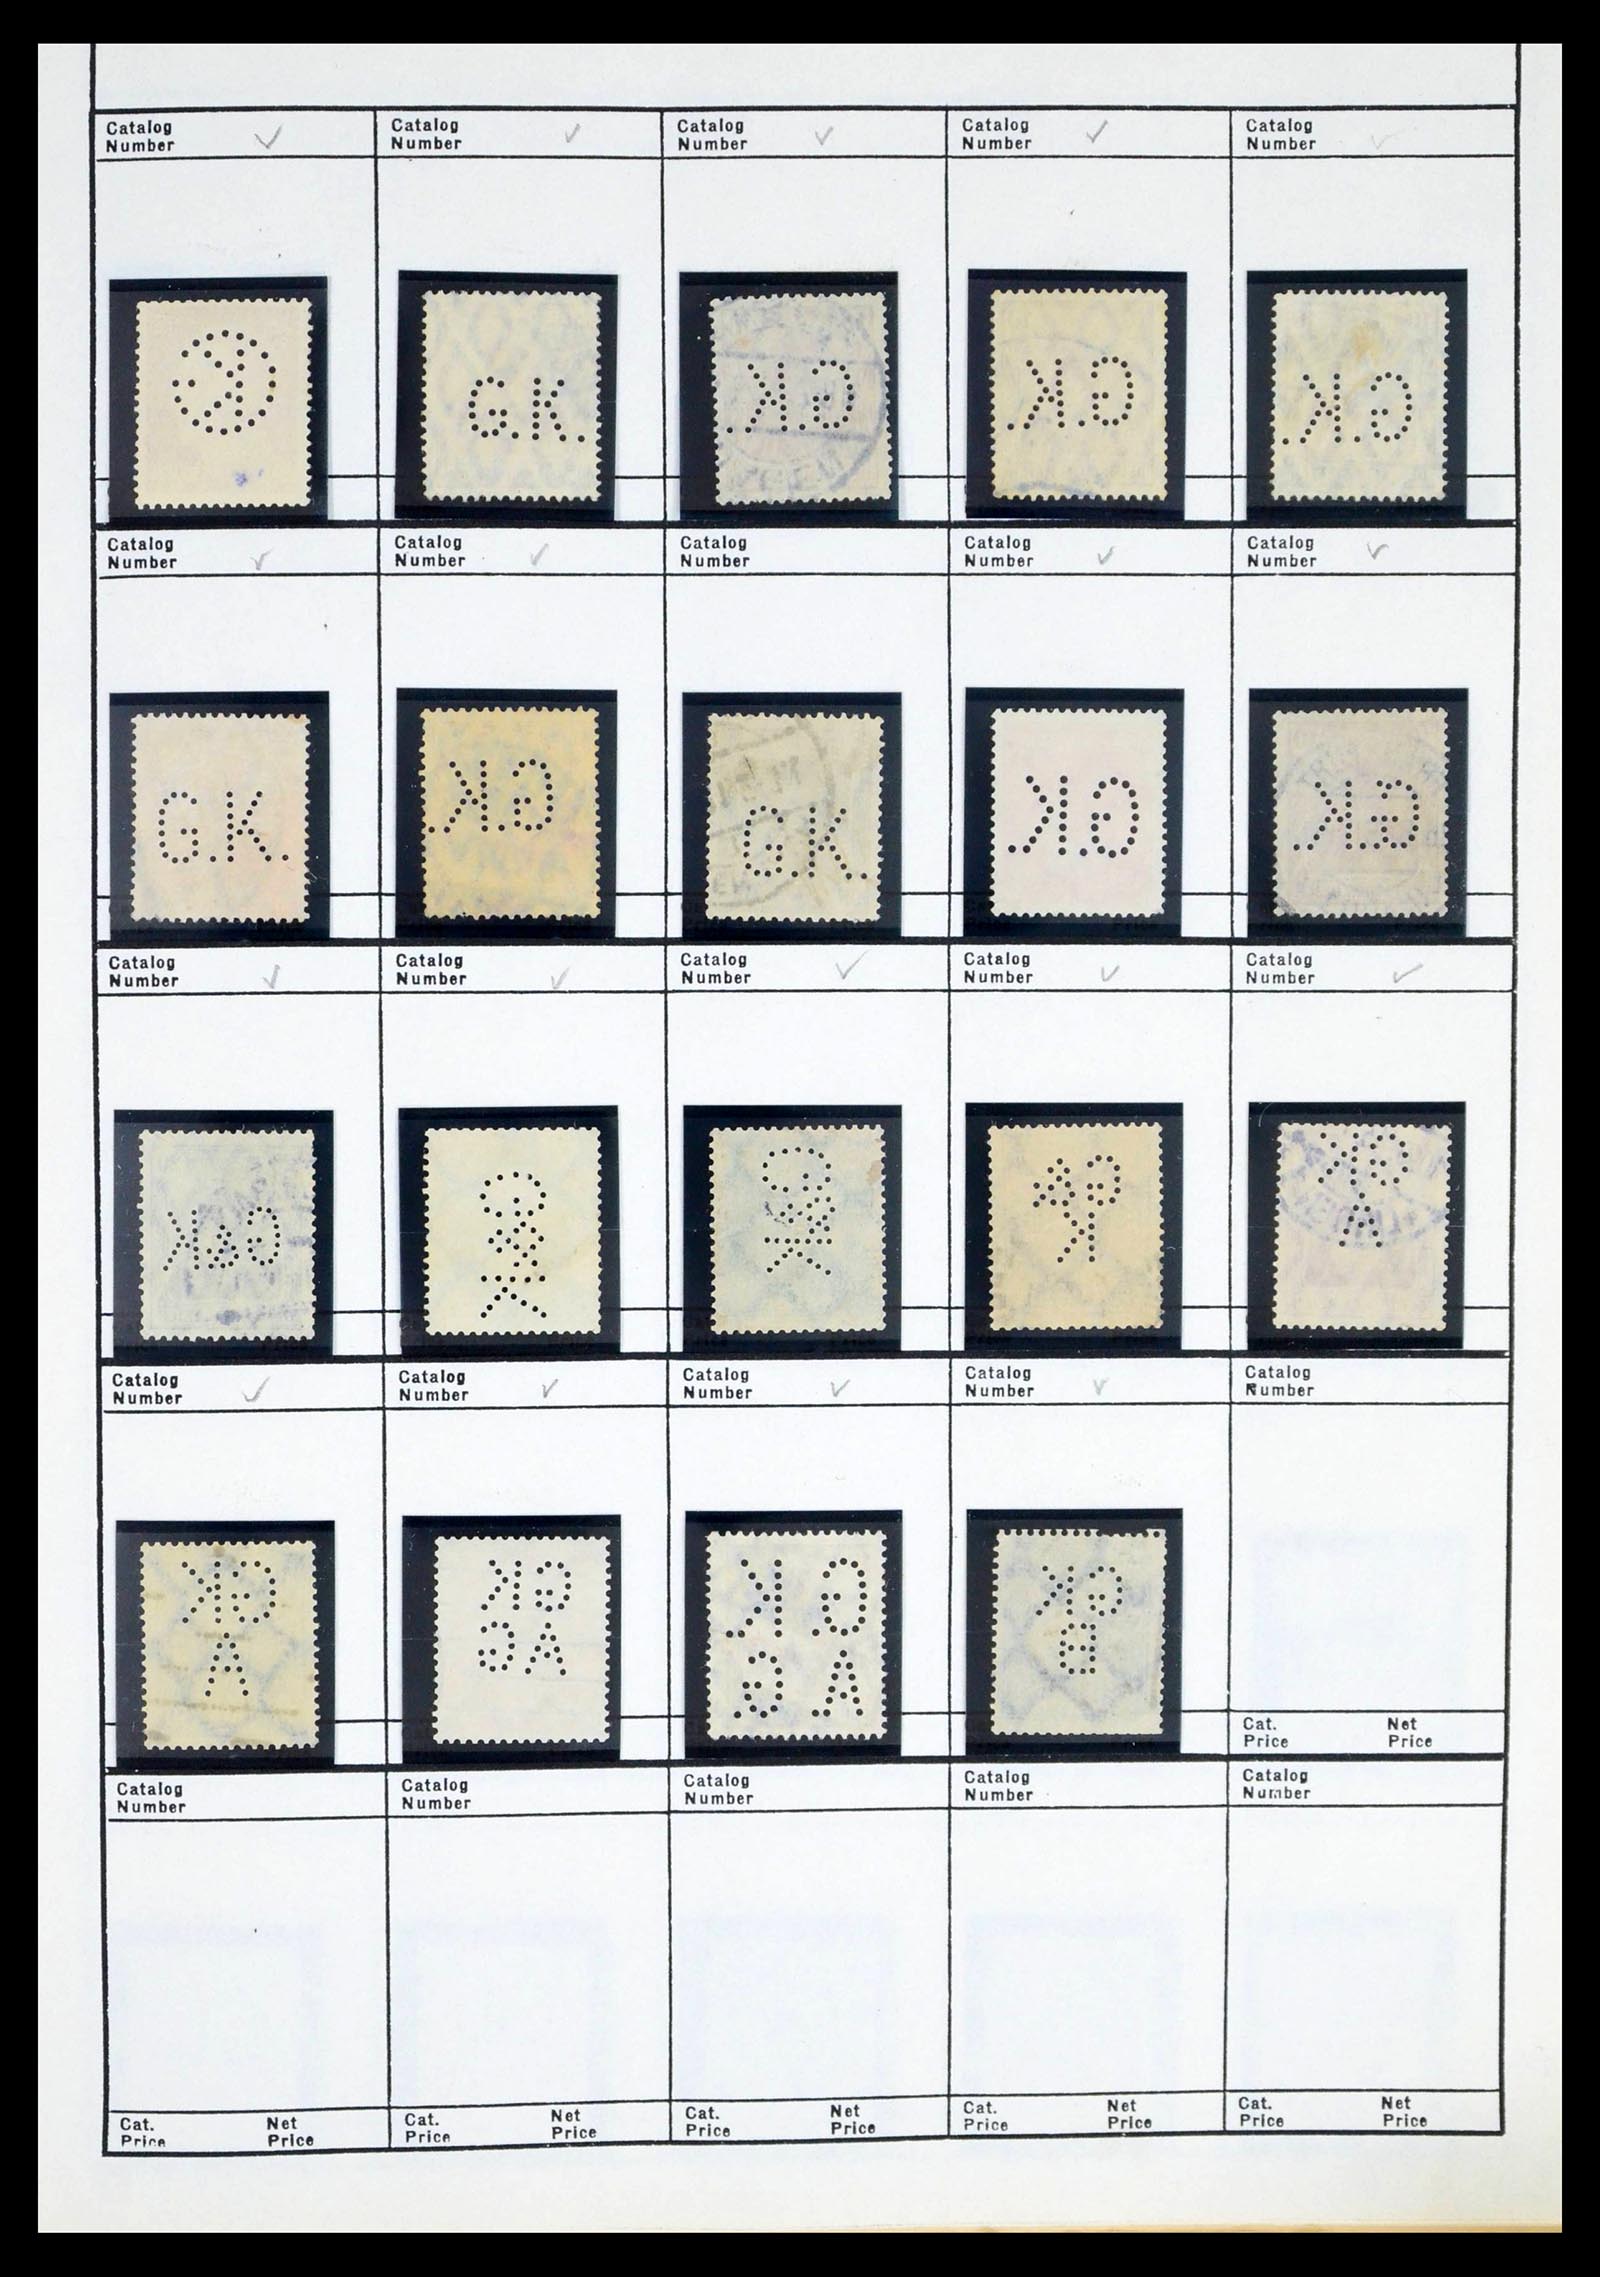 Catalog Number ✓ Catalog Number ✓ Catalog Number ✓ Catalog Number ✓ Catalog Number ✓
G.K. G.K. G.K. G.K.
Catalog Number ✓ Catalog Number ✓ Catalog Number Catalog Number ✓ Catalog Number ✓
G.K. G.K. G.K. G.K. G.K.
Price
Catalog Number ✓ Catalog Number ✓ Catalog Number ✓ Catalog Number ✓ Catalog Number ✓
G&K G&K G&K GK
A
Catalog Number ✓ Catalog Number ✓ Catalog Number ✓ Catalog Number ✓ Catalog Number
GK GK G.K. GK
A AG A.G. B
Cat. Price Net Price
Catalog Number Catalog Number Catalog Number Catalog Number Catalog Number
Cat. Price Net Price Cat. Price Net Price Cat. Price Net Price Cat. Price Net Price Cat. Price Net Price